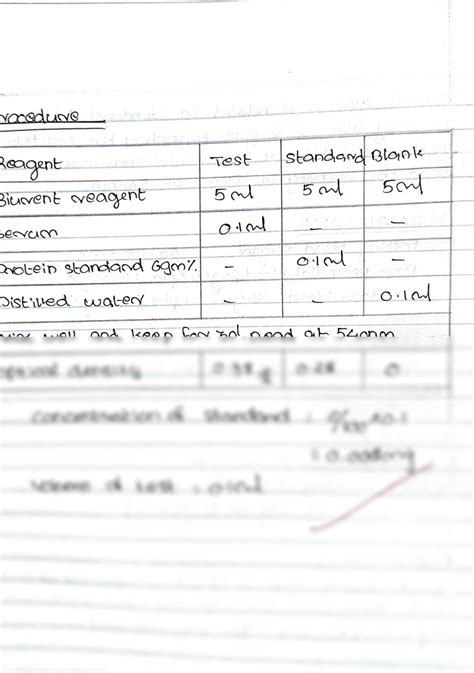 rocedure
Reagent Test Standard Blank
Biurent reagent 5ml 5ml 5ml
Serum 0.1ml - -
Protein standard 6gm% - 0.1ml -
Distilled water - - 0.1ml
well and keep for read at 540nm
optical density 0
concentration of standard :
volume of test : 0.1ml